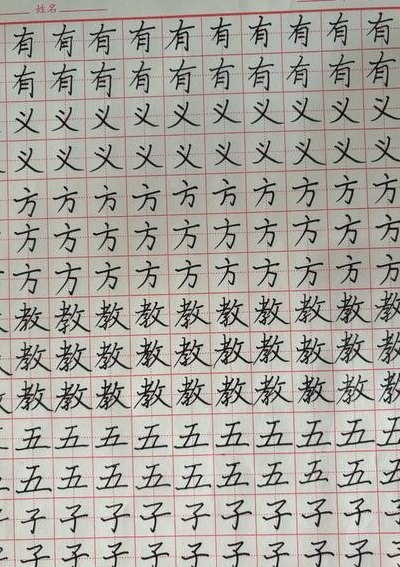 姓名
有有有有有有有有有有
有有有有有有有有有有
义义义义义义义义义义
义义义义义义义义义义
方方方方方方方方方方
方方方方方方方方方方
方方方方方方方方方方
教教教教教教教教教教
教教教教教教教教教教
教教教教教教教教教教
五五五五五五五五五五
五五五五五五五五五五
子子子子子子子子子子
子子子子子子子子子子